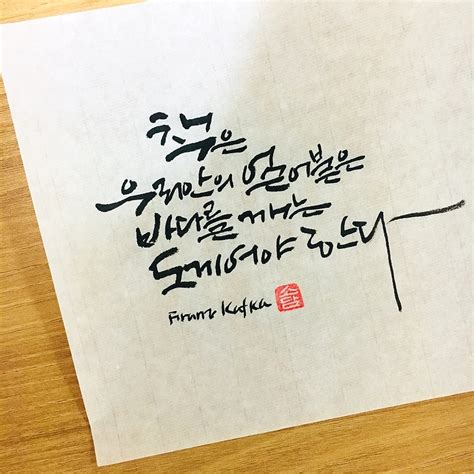 책은
우리안의 얼어붙은
바다를 깨는
도끼여야 한다
Franz Kafka
소담